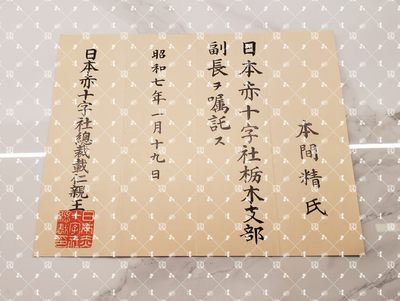 本間精氏
日本赤十字社栃木支部
副長ヲ嘱託ス
昭和七年一月十九日
日本赤十字社總裁載仁親王